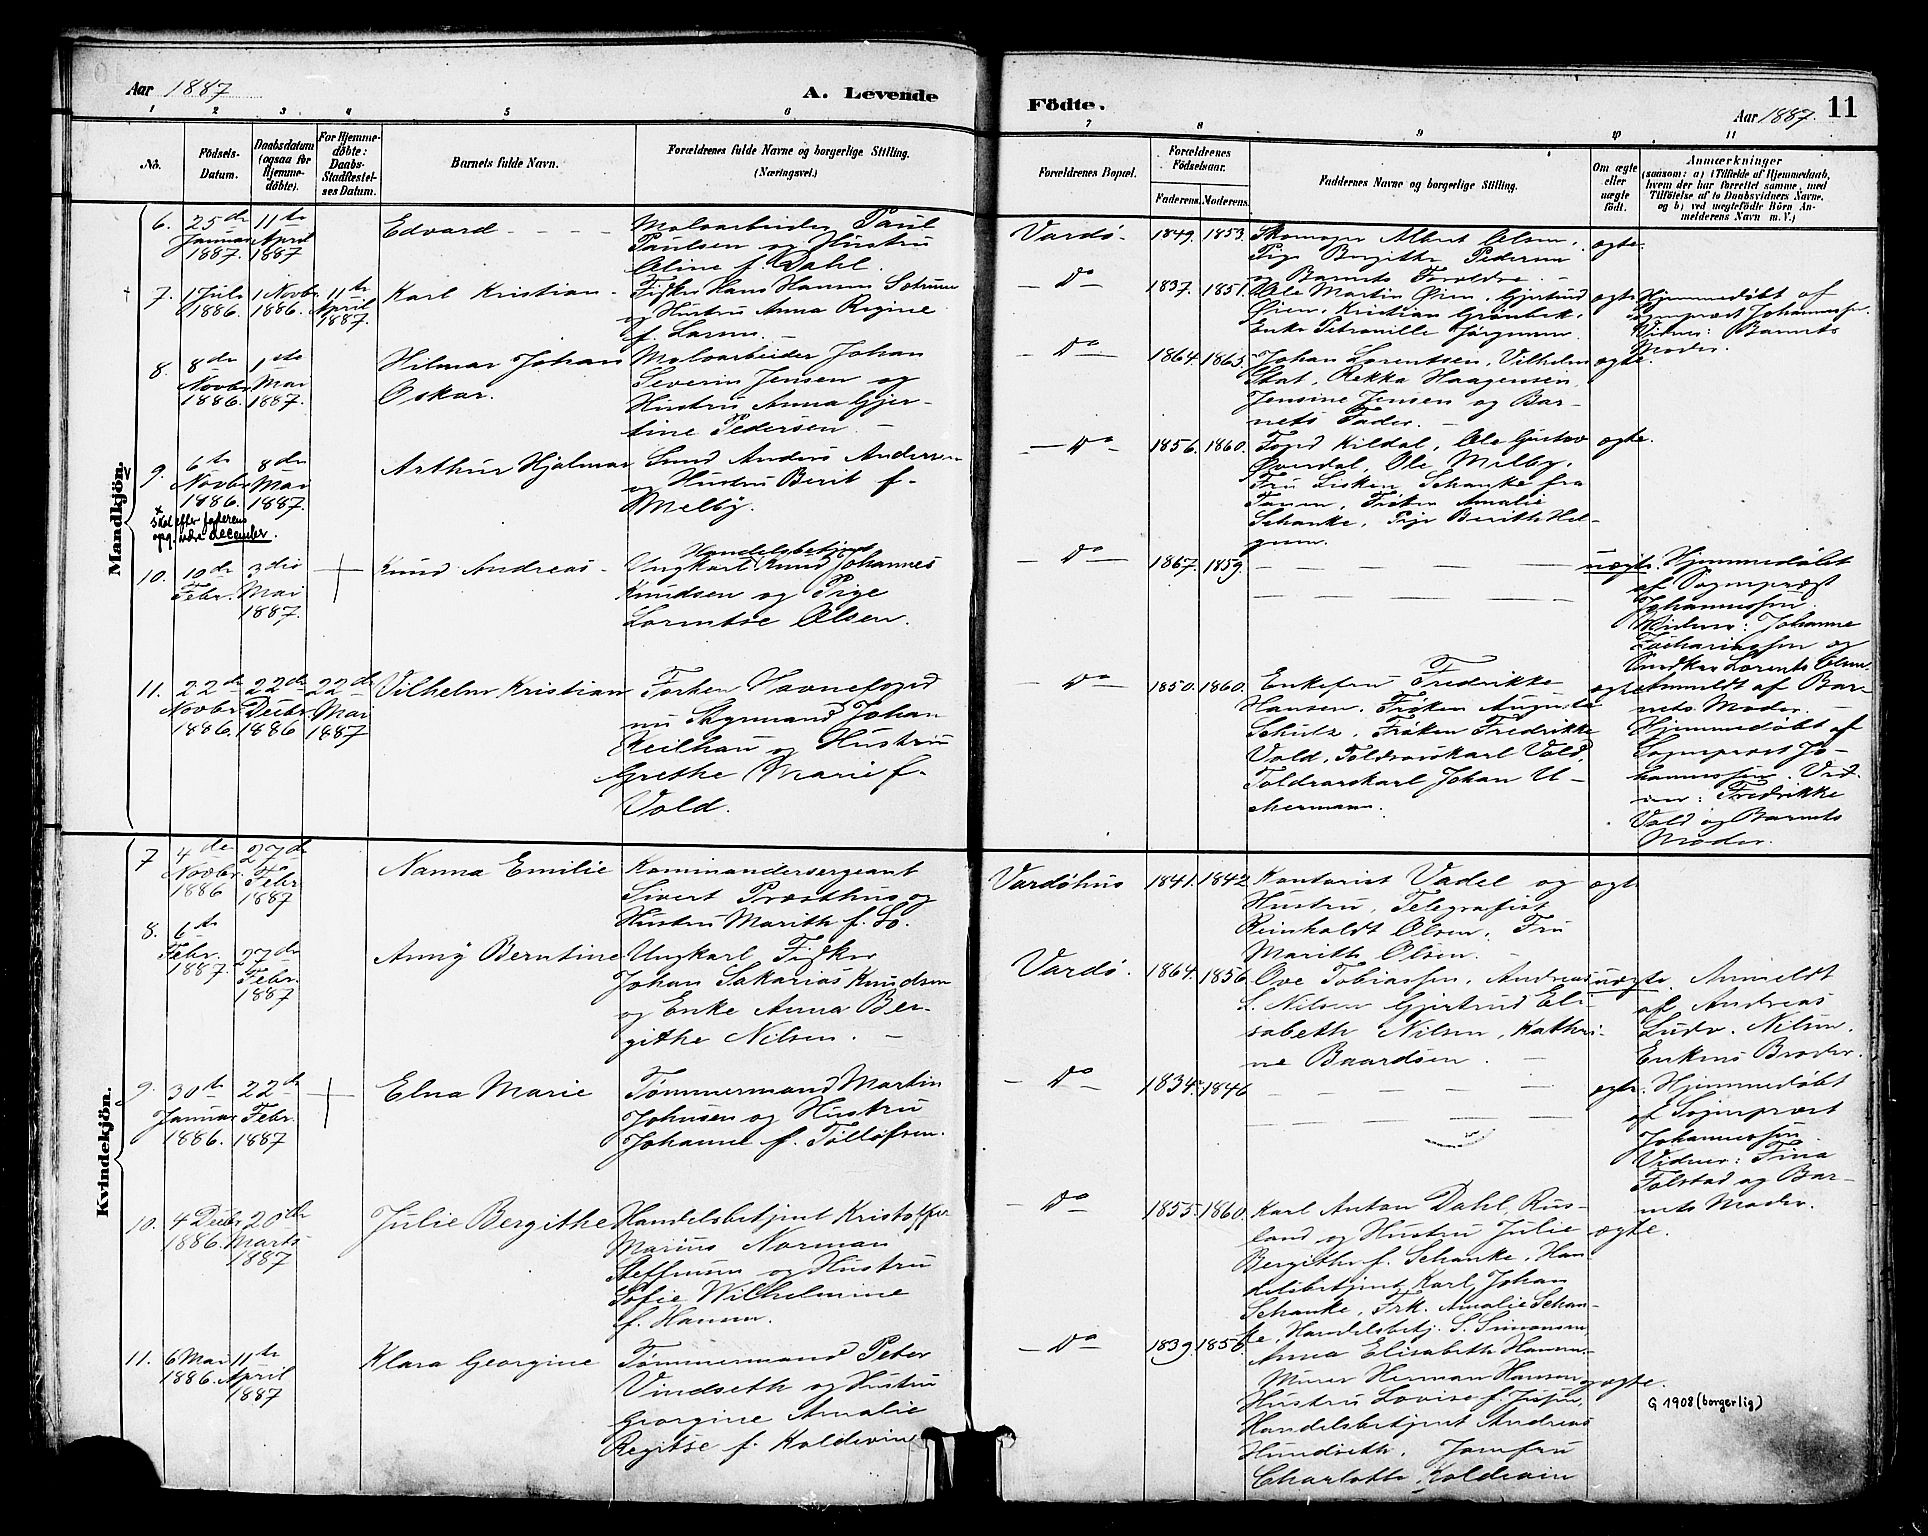 Aar 1887
A. Levende
Födte.
Aar 1887. 11
1 2 3 4 5 6 7 8 9 10 11
No.
Födsels-
Datum.
Daabsdatum
(ogsaa for
Hjemme-
döbte).
For Hjemme-
döbte:
Daabs-
Stadfæstel-
ses Datum.
Barnets fulde Navn.
Forældrenes fulde Navne og borgerlige Stilling.
(Næringsvei.)
Forældrenes Bopæl.
Forældrenes
Födselsaar.
Faderens. Moderens.
Faddernes Navne og borgerlige Stilling.
Om ægte
eller
uægte
födt.
Anmærkninger
(saasom: a) i Tilfælde af Hjemmedaab,
hvem der har forrettet samme, med
Tilföielse af to Daabsvidners Navne,
og b) ved uægtefödte Börn An-
melderens Navn m. V.)
Mandkjön.
6. 25de
Januar
1887.
11te
April
1887
Edvard
Malerarbeider Paul
Paulsen og Hustru
Oline f. Dahl.
Vardö.
1849. 1853.
Skomager Albert Olsen,
Pige Bergitte Pedersen
og Barnets Forældre.
ægte.
7. 1 Juli
1886.
1 Novbr
1886.
11te
April
1887.
Karl Kristian
Fisker Hans Hansen
og Hustru Anna Regine
f. Larsen
Do
1837. 1851.
Ole Martin Ören, Gjertrud
Ören, Kristian Grönbek,
Enke Petronille Jörgensen
ægte
Hjemmedöbt af
Sognepræst Johannessen.
Vidner: Barnets
Moder.
8. 8de
Novbr
1886.
1ste
Mai
1887.
Hilmar Johan
Oskar.
Johan
Severin Jensen og
Hustru Anna Gjer-
tine Pedersen
Do
1864. 1863.
Johan Lorentsen, Vilhelm
Stat, Rekka Haagensen,
Jensine Jensen og Bar-
nets Fader.
ægte.
9. 6te
Novbr
1886.
8de
Mai
1887.
x
skal efter faderens
opg. være december.
Arthur Hjalmar
Anders Andersen
og Hustru Berit f.
Melby.
Do
1856. 1860.
Kildal, Ole Gustav
Överdal, Ole Melby,
Fru Lisken Schanke fra
Tanen, Fröken Amalie
Schanke, Pige Berith Hel-
gesen.
ægte.
10. 10de
Febr.
3die
Mai
1887.
Knud Andreas
Handelsbetjent
Ungkarl Knud Johannes
Knudsen og Pige
Lorentse Olsen.
Do
1867. 1859.
uægte.
Hjemmedöbt
af Sogneprest
Johannessen.
Vidner: Johanne
Zachariassen og
Lorents Olsen.
Anmeldt af Bar-
nets Moder.
11. 22de
Novbr
1886.
22de
Decbr
1886
22de
Mai
1887
Vilhelm Kristian
Forhen Havnefoged
nu Styrmand Johan
Keilhau og Hustru
Grethe Marie f.
Vold.
Do
1850. 1860.
Enkefru Fredrikke
Hansen, Fröken Augusta
Schulz, Fröken Fredrikke
Vold, Toldroerskarl Vold,
Toldroerskarl Johan U-
chermann.
ægte
Hjemmedöbt af
Sogneprest Jo-
hannessen. Vid-
ner: Fredrikke
Vold og Barnets
Moder.
Kvindekjön.
7 4de
Novbr.
1886
27de
Febr
1887
Nanna Emilie
Kommandersergeant
Sivert Præsthus og
Hustru Marith f. Lo.
Vardöhus
1841. 1842
Kontorist Vadel og
Hustru, Telegrafist
Reinholdt Olsen, Fru
Marith Olsen.
ægte
8. 6te
Febr.
1887.
27de
Febr.
1887
Anny Berntine
Ungkarl Fisker
Johan Sakarias Knudsen
og Enke Anna Ber-
githe Nilsen.
Vardö.
1864. 1856
Ove Tobiassen, Andreas
L. Nilsen Gjertrud Eli-
sabeth Nilsen, Kathri-
ne Baardsen.
uægte.
Anmeldt
af Andreas
Ludv. Nilsen.
Enkens Broder.
9. 30te
Januar
1886.
22de
Febr.
1887
Elna Marie
Tömmermand Martin
Johnsen og Hustru
Johanne f. Tollöfsen.
Do
1834. 1846
ægte.
Hjemmedöbt
af Sogneprest
Johannessen.
Vidner: Fina
Tolstad og Bar-
nets Moder.
10. 4 Decbr
1886.
20de
Marts
1887
Julie Bergithe
Handelsbetjent Kristoffer
Marius Norman
Steffensen og Hustru
Sofie Wilhelmine
f. Hansen.
Do
1855. 1860.
Karl Anton Dahl, Rus-
land og Hustru Julie
Bergithe f. Schanke, Han-
delsbetjent Karl Johan
Schanke, Frk. Amalie Schan-
ke, Handelsbetj. S. Simonsen,
ægte.
11. 6 Mai
1886.
11te
April
1887
Klara Georgine
Tömmermand Peter
Vindseth og Hustru
Georgine Amalie
Regitse f. Koldevin
Do
1839. 1856.
Anna Elisabeth Hansen
Murer Herman Hansen og
Hustru Lovise f. Jessen,
Handelsbetjent Andreas
Hundseth, Jomfru
Charlotte Koldevin
ægte.
G 1908 (borgerlig)